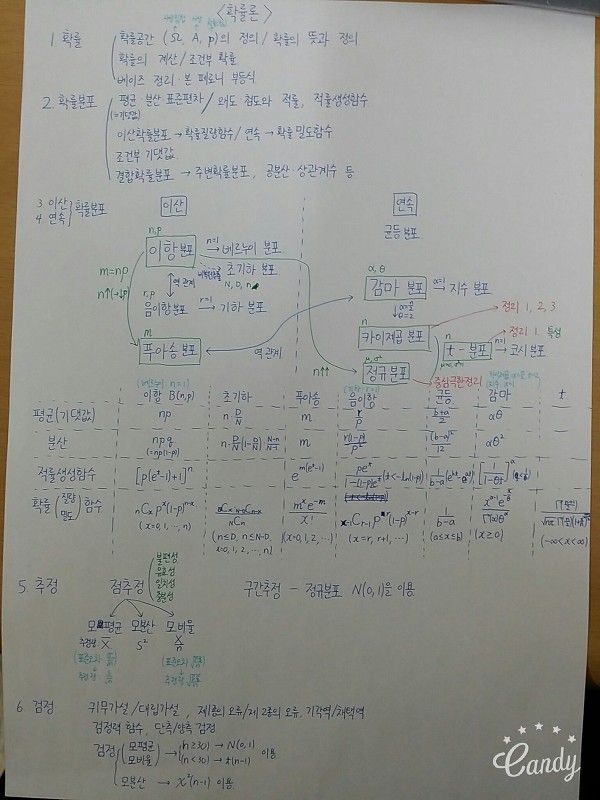 <확률론>
1 확률
확률공간 (Ω, A, p)의 정의 / 확률의 뜻과 정의
확률의 계산 / 조건부 확률
베이즈 정리 · 본 페로니 부등식
2. 확률분포
평균 · 분산 표준편차 / 왜도 첨도와 적률, 적률생성함수
(=기댓값)
이산확률분포 → 확률질량함수 / 연속 → 확률 밀도함수
조건부 기댓값
결합확률분포 → 주변확률분포, 공분산 · 상관계수 등
3 이산
4 연속
확률분포
이산
연속
균등 분포
n, p
이항 분포
n=1
베르누이 분포
초기하 분포
N, D, n
m=np
역 관계
r, p
음이항 분포
r=1
기하 분포
m
푸아송 분포
역 관계
n↑↑
α, θ
감마 분포
α=1
지수 분포
카이제곱 분포
정리 1, 2, 3
n
t - 분포
n=1
코시 분포
정리 1. 특성
μ, σ²
정규 분포
중심극한정리
(베르누이 n=1)
이항 B(n,p) 초기하 푸아송 음이항 균등 감마 t
평균(기댓값) np n·D/N m r/p (b+a)/2 αθ
분산 npq (=np(1-p)) n·D/N(1-D/N)(N-n)/(N-1) m r(1-p)/p² (b-a)²/12 αθ²
적률생성함수 [p(e^t-1)+1]^n e^{m(e^t-1)}
확률 (질량/밀도) 함수 nCx p^x(1-p)^{n-x} m^x e^{-m}/x! x-1Cr-1 p^r(1-p)^{x-r} 1/(b-a)
(x=0, 1, …, n) (n≤D, n≤N-D, x=0,1,2, …, n) (x=0,1,2, …) (x=r, r+1, …) (a≤x≤b) (x≥0) (-∞<x<∞)
5. 추정
점추정
불편성
유효성
일치성
충분성
구간추정 - 정규분포 N(0,1)을 이용
모평균 모분산 모비율
추정량 X̄ S² X/n
6. 검정
귀무가설 / 대립가설, 제1종의 오류 / 제2종의 오류, 기각역 / 채택역
검정력 함수, 단측 / 양측 검정
검정
모평균
모비율
(n≥30) → N(0,1)
(n<30) → t(n-1)
이용
모분산 → χ²(n-1) 이용.
Candy